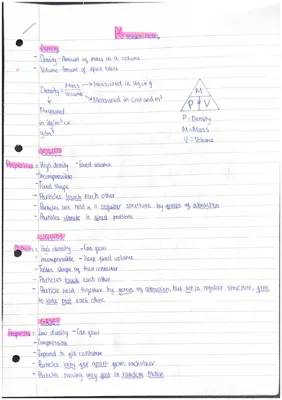 P1 revision notes
Density
- Density - Amount of mass in a volume
- Volume - Amount of space taken
Density = Mass → Measured in kg or g
Volume → Measured in cm³ and m³
↓
Measured
in kg/m³ or
g/cm³
M
P V
P = Density
M = Mass
V = Volume
SOLIDS
Properties: - High density - Fixed volume
- Incompressible
- Fixed shape
- Particles touch each other
- Particles are held in a regular structure by forces of attraction
- Particles vibrate in fixed positions
LIQUIDS
- High density - Can flow
- Incompressible - Keep fixed volume
- Takes shape of container
- Particles touch each other
- Particles held together by forces of attraction, but not in regular structure,
to slide past each other
GASES
Properties: - Low density - Can flow
- Compressible
- Expand to fill container
- Particles very far apart from each other
- Particles moving very fast in random motion